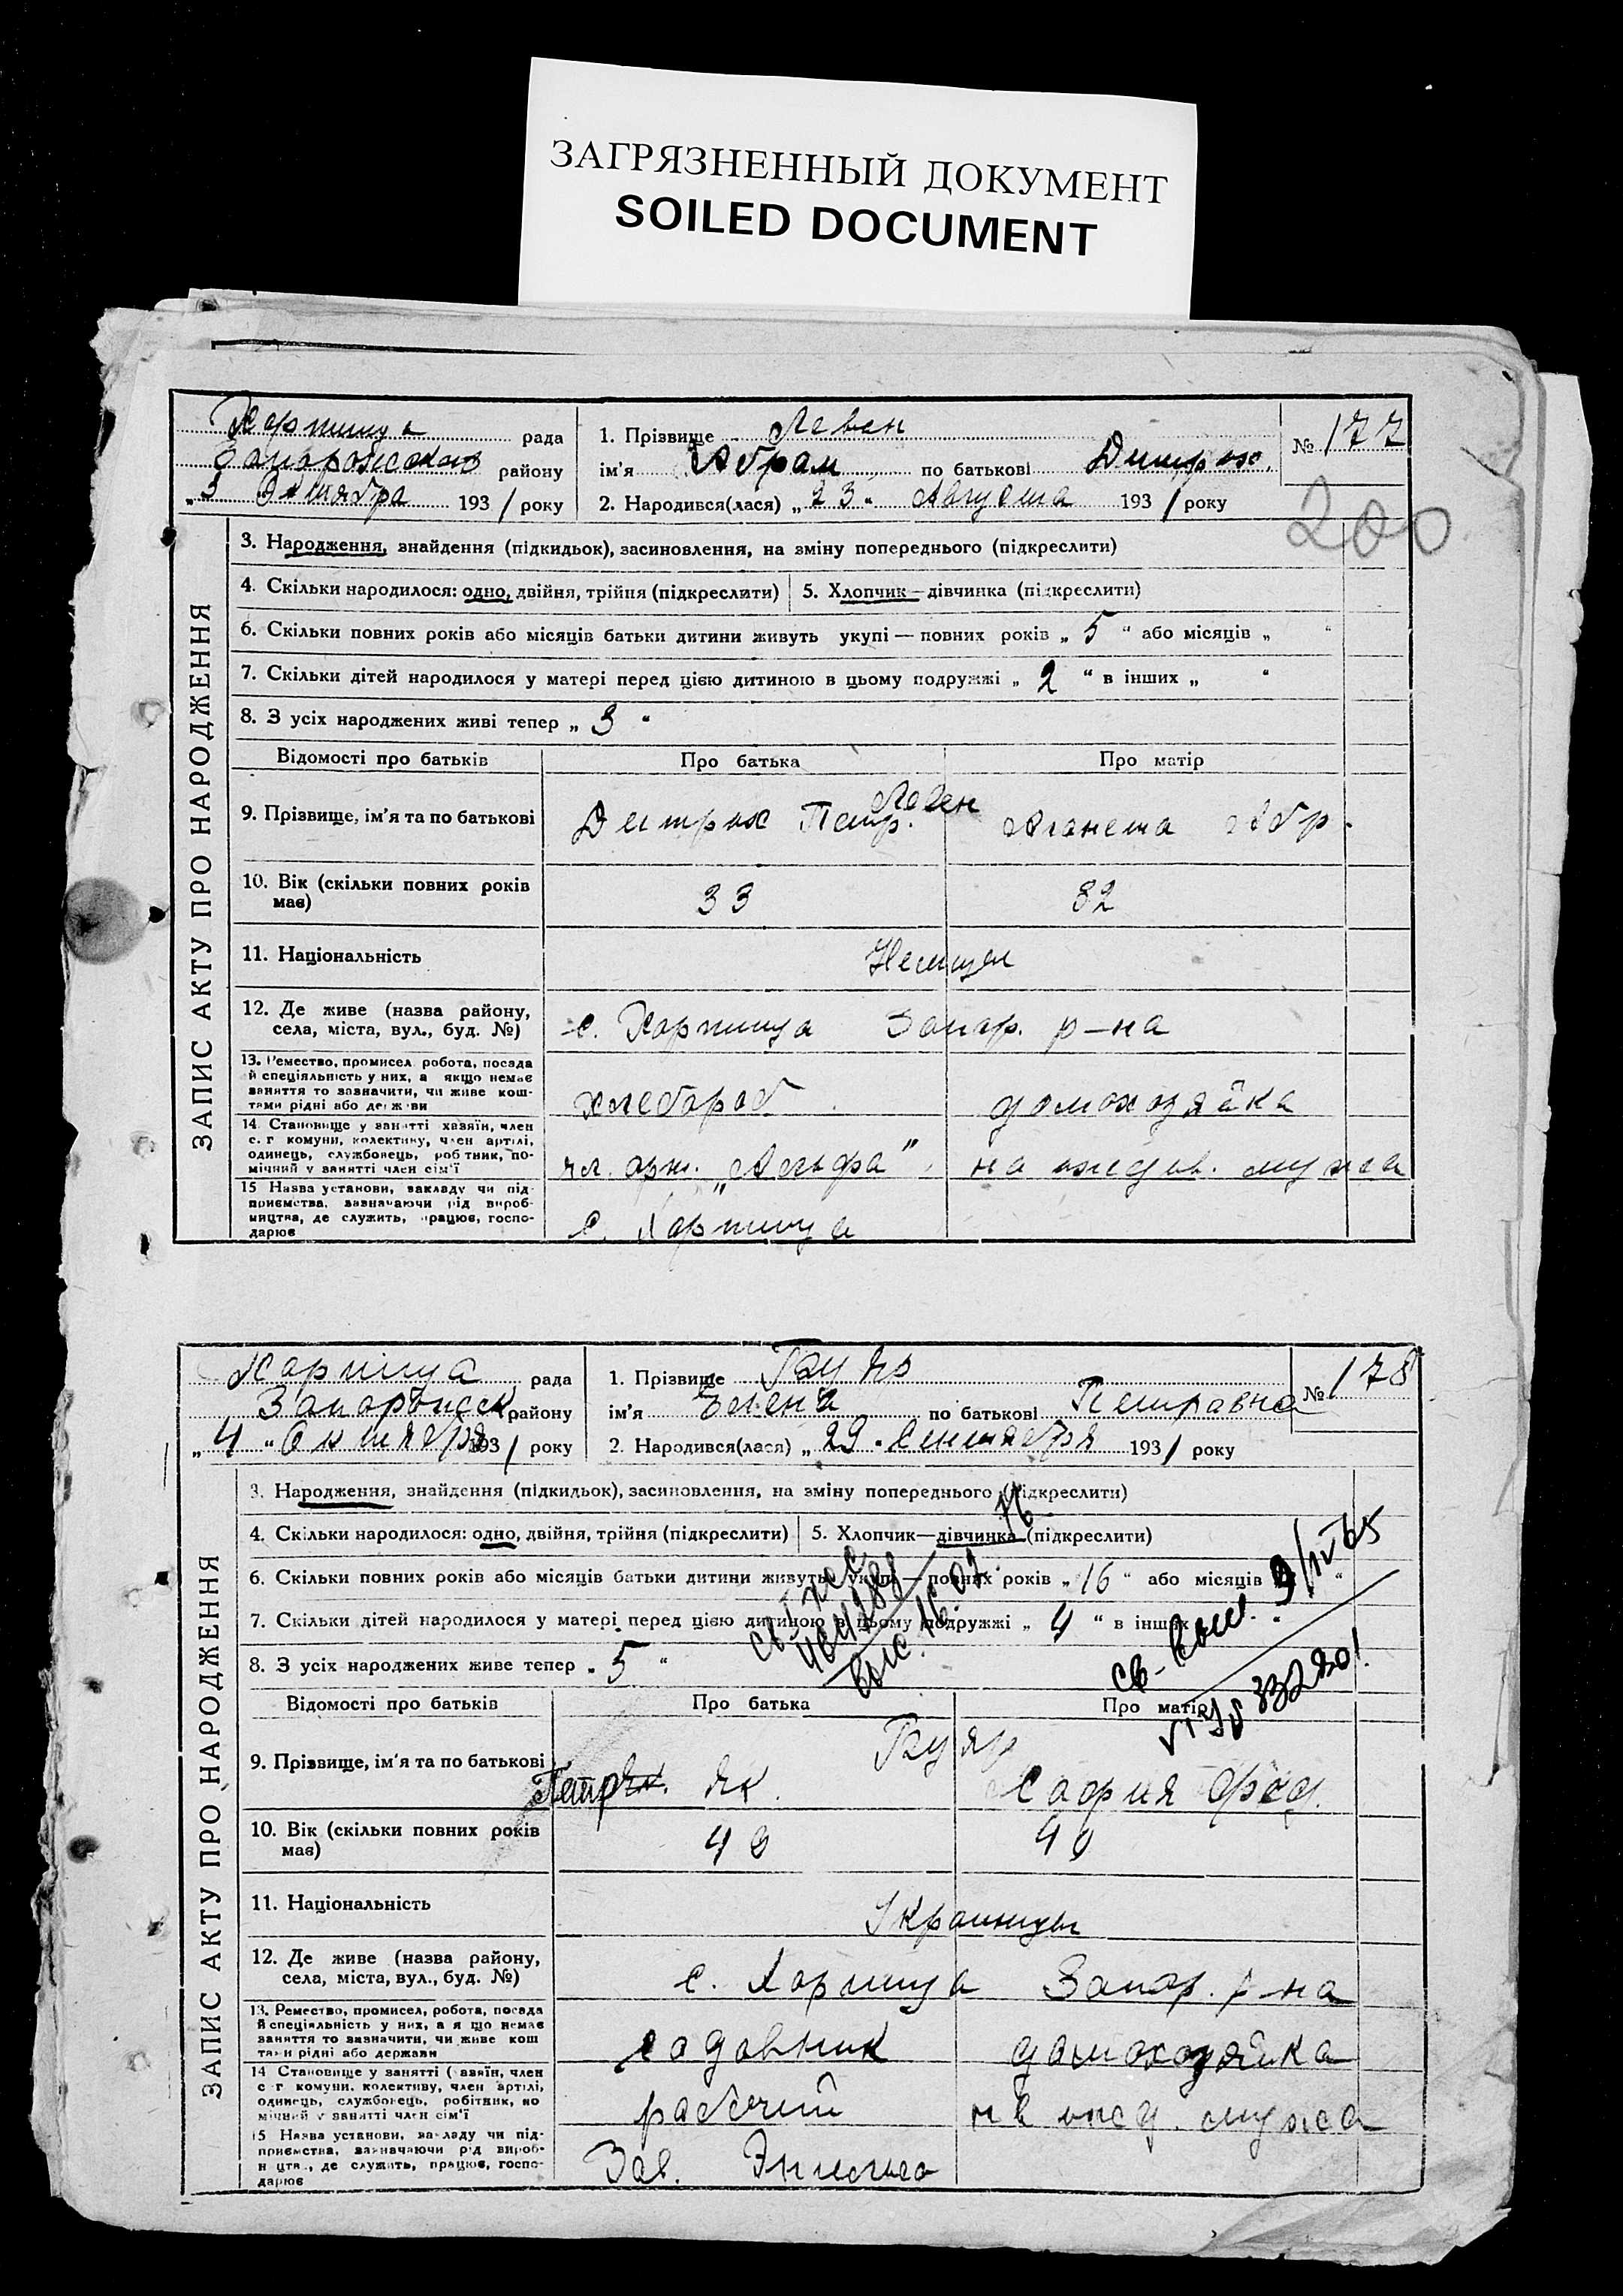 ЗАГРЯЗНЕННЫЙ ДОКУМЕНТ
SOILED DOCUMENT
Хортица рада 1. Прізвище Левен № 177
Запорожского району ім'я Абрам по батькові Дитрих.
„3 Октября 1931 року 2. Народився(лася) „23" Августа 1931 року
200
ЗАПИС АКТУ ПРО НАРОДЖЕННЯ
3. Народження, знайдення (підкидьок), засиновлення, на зміну попереднього (підкреслити)
4. Скільки народилося: одно, двійня, трійня (підкреслити) 5. Хлопчик—дівчинка (підкреслити)
6. Скільки повних років або місяців батьки дитини живуть укупі — повних років „5" або місяців „ "
7. Скільки дітей народилося у матері перед цією дитиною в цьому подружжі „2" в інших „ "
8. З усіх народжених живі тепер „3"
Відомості про батьків Про батька Про матір
9. Прізвище, ім'я та по батькові Дитрих Петр. Левен Аганета Абр.
10. Вік (скільки повних років має) 33 32
11. Національність Немцы
12. Де живе (назва району, села, міста, вул., буд. №) с. Хортица Запор. р-на
13. Ремество, промисел робота, посада й спеціяльність у них, а якщо немає заняття то зазначити, чи живе коштами рідні або держави хлебороб домохозяйка
14. Становище у занятті хазяїн, член с. г комуни, колективу, член артілі, одинець, службовець, робтник, помічний у занятті член сім'ї чл. арт. „Альфа" на иждив. мужа
15 Назва установи, закладу чи підприємства, зазначаючи рід виробництва, де служить, працює, господарює с. Хортица
Хортица рада 1. Прізвище № 178
Запорожск району ім'я Елена по батькові Петровна
„4" Октября 1931 року 2. Народився(лася) „29" Сентября 1931 року
ЗАПИС АКТУ ПРО НАРОДЖЕННЯ
3. Народження, знайдення (підкидьок), засиновлення, на зміну попереднього (підкреслити)
4. Скільки народилося: одно, двійня, трійня (підкреслити) 5. Хлопчик—дівчинка (підкреслити)
6. Скільки повних років або місяців батьки дитини живуть укупі — повних років „16" або місяців "
7. Скільки дітей народилося у матері перед цією дитиною в цьому подружжі „4" в інших
8. З усіх народжених живе тепер „5"
Відомості про батьків Про батька Про матір
9. Прізвище, ім'я та по батькові Петр Як. София Фед.
10. Вік (скільки повних років має) 43 40
11. Національність Украинцы
12. Де живе (назва району, села, міста, вул., буд. №) с. Хортица Запор. р-на
13. Ремество, промисел, робота, посада й спеціяльність у них, а якщо немає заняття то зазначити, чи живе коштами рідні або держави садовник домохозяйка
14 Становище у занятті (хазяїн, член с г комуни, колективу, член артілі, одинець, службовець, робітник, помічний у занятті член сім'ї рабочий на ижд. мужа
15 Назва установи, закладу чи підприємства, зазначаючи рід виробництва, де служить, працює, господарює Зав. Энгельса